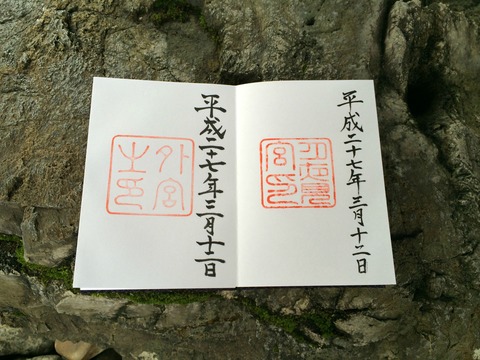 平成二十七年三月十二日
月夜見
宮印
平成二十七年三月十二日
外宮
之印